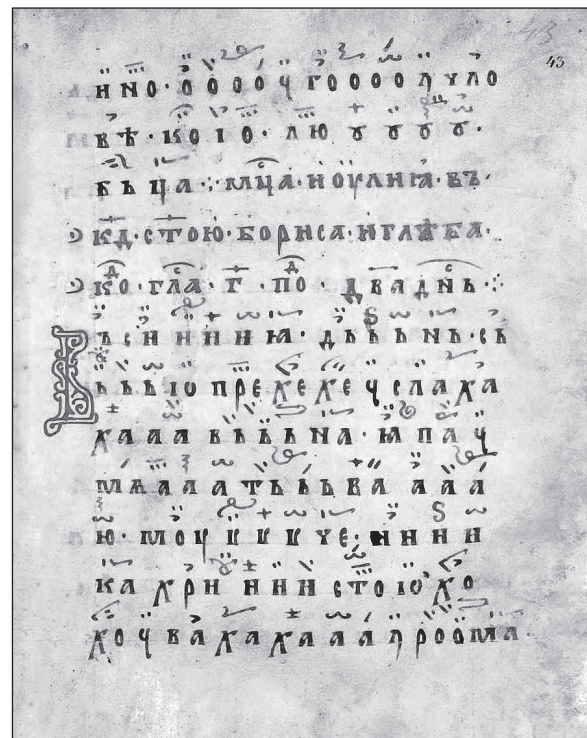 ино·оооо ч гоооо ҁ уло
вѣ·кою·лю ꙋ ꙋ ꙋ ꙋ·
вьца·:·мц҃а·ноулиꙗ·въ·
кд·стою·бориса·и глѣба·
ко·гла·г·по·двад нь·:·
Въсиииіꙗ·дьььнь·сь
ьььıо прехехеч слаха
хааа вьььна·ꙗ пач
мѧааатььььва ааа
ю·мочиииче·ииии
ка хри нии стою хо
хоч ва ха хааа ҁ роома
43